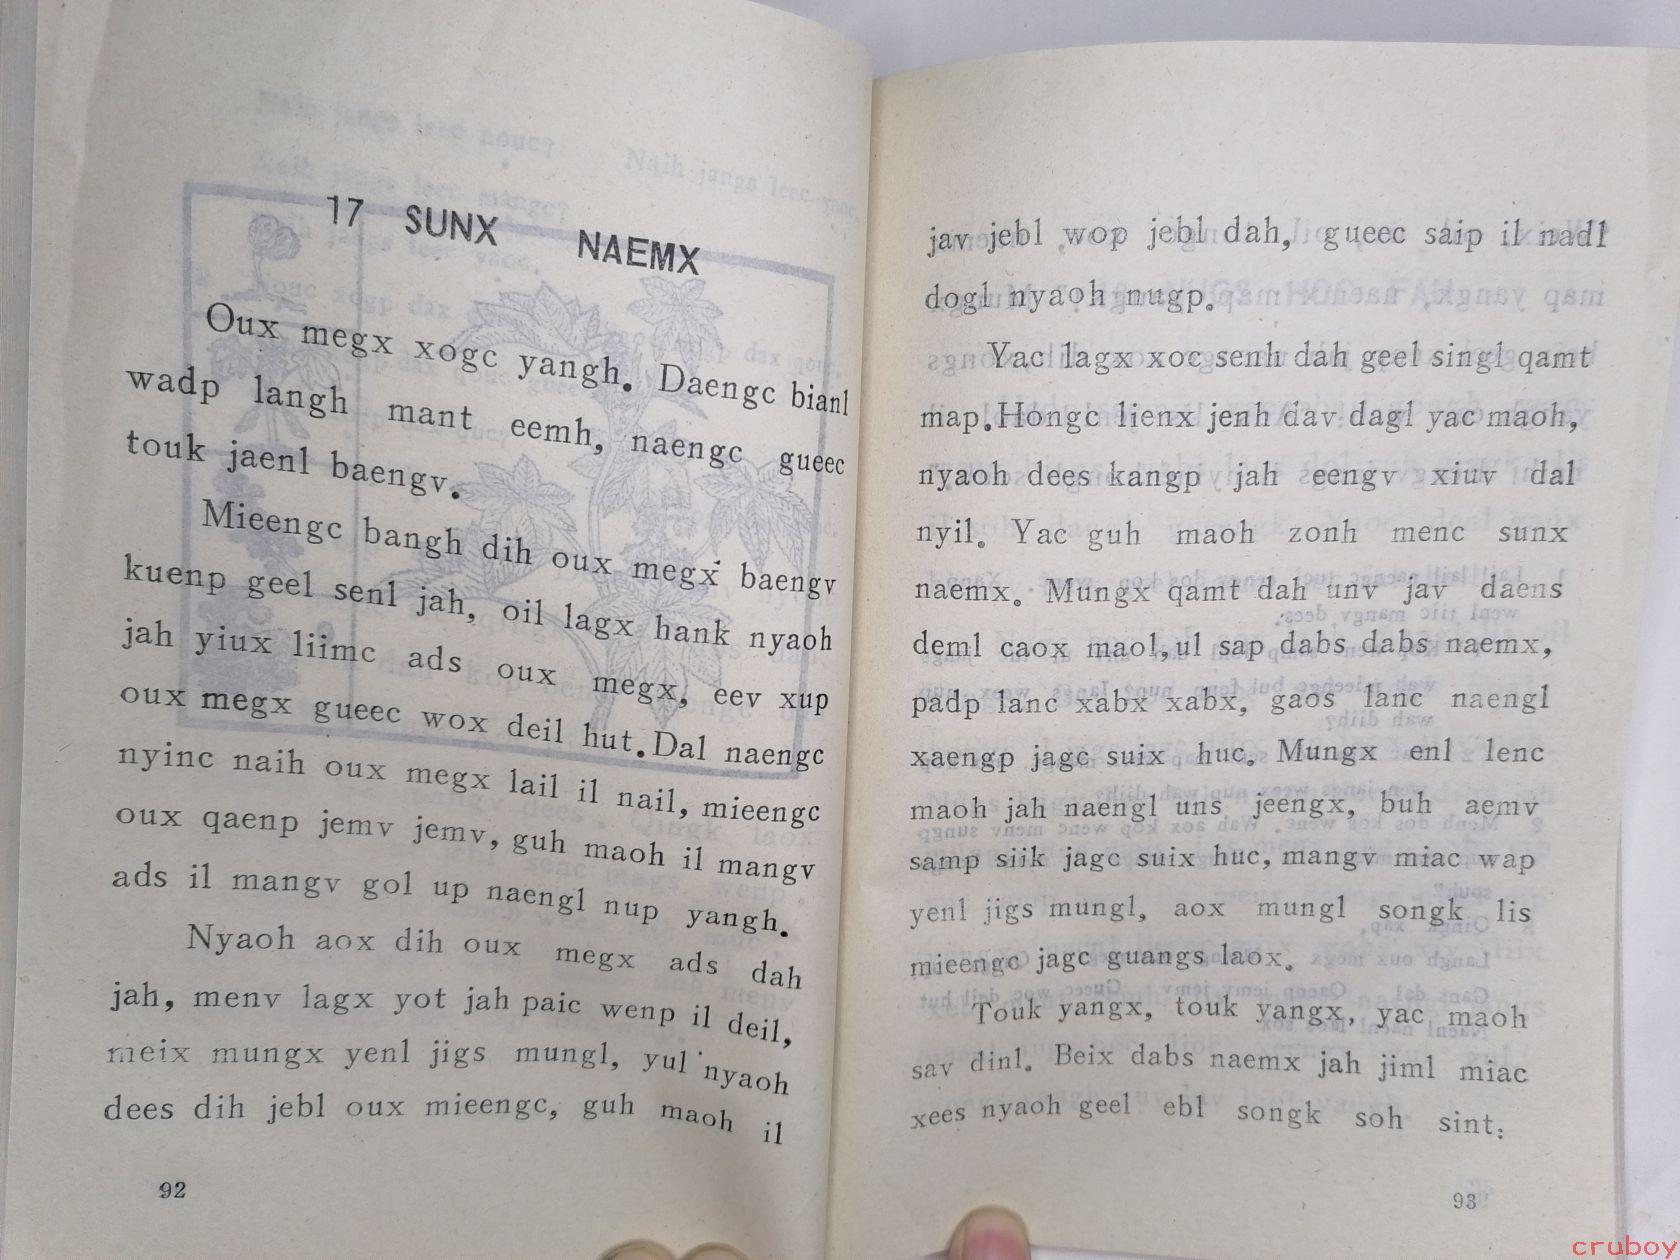 17 SUNX NAEMX
Oux megx xogc yangh. Daengc bianl
wadp langh mant eemh, naengc gueec
touk jaenl baengv.
Mieengc bangh dih oux megx baengv
kuenp geel senl jah, oil lagx hank nyaoh
jah yiux liimc ads oux megx, eev xup
oux megx gueec wox deil hut. Dal naengc
nyinc naih oux megx lail il nail, mieengc
oux qaenp jemv jemv, guh maoh il mangv
ads il mangv gol up naengl nup yangh.
Nyaoh aox dih oux megx ads dah
jah, menv lagx yot jah paic wenp il deil,
meix mungx yenl jigs mungl, yul nyaoh
dees dih jebl oux mieengc, guh maoh il
92
jav jebl wop jebl dah, gueec saip il nadl
dogl nyaoh nugp.
Yac lagx xoc senh dah geel singl qamt
map. Hongc lienx jenh dav dagl yac maoh,
nyaoh dees kangp jah eengv xiuv dal
nyil. Yac guh maoh zonh menc sunx
naemx. Mungx qamt dah unv jav daens
deml caox maol, ul sap dabs dabs naemx,
padp lanc xabx xabx, gaos lanc naengl
xaengp jagc suix huc. Mungx enl lenc
maoh jah naengl uns jeengx, buh aemv
samp siik jagc suix huc, mangv miac wap
yenl jigs mungl, aox mungl songk lis
mieengc jagc guangs laox.
Touk yangx, touk yangx, yac maoh
sav dinl. Beix dabs naemx jah jiml miac
xees nyaoh geel ebl songk soh sint:
93
cruboy